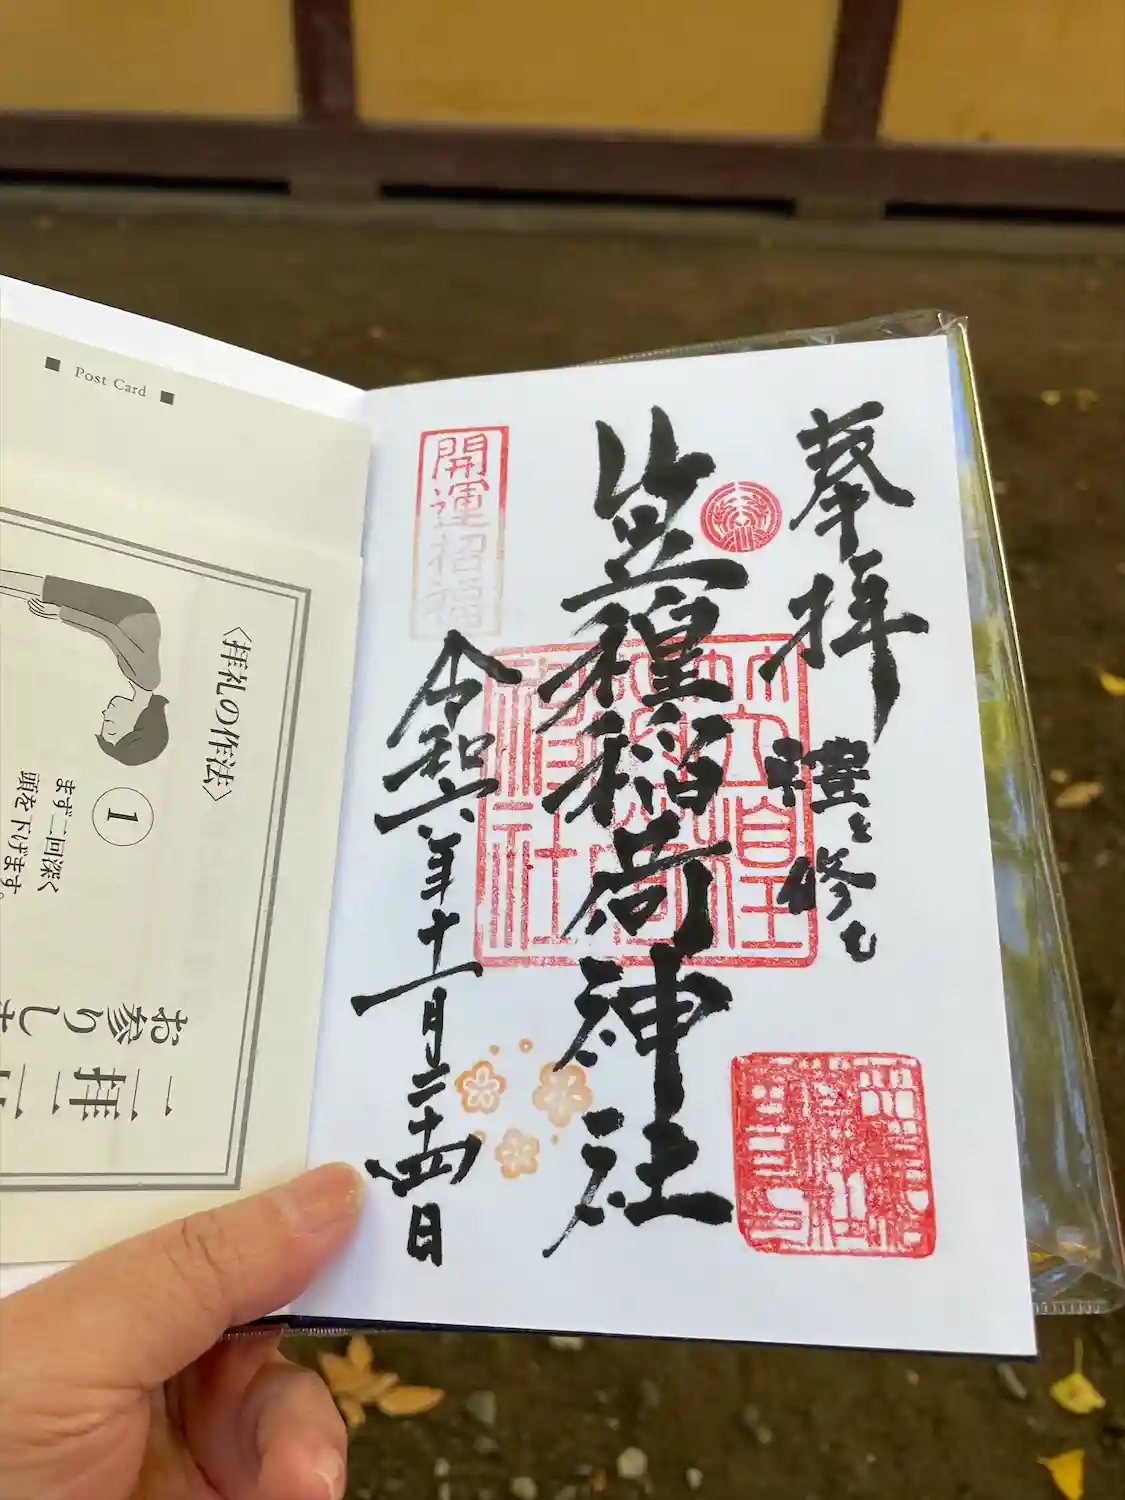 奉拝
禮を修む
笠䅣稲荷神社
開運招福
令和六年十一月二十四日
笠䅣
稲荷
神社
■ Post Card ■
〈拝礼の作法〉
1
まず二回深く
頭を下げます。
お参りし
二拝二